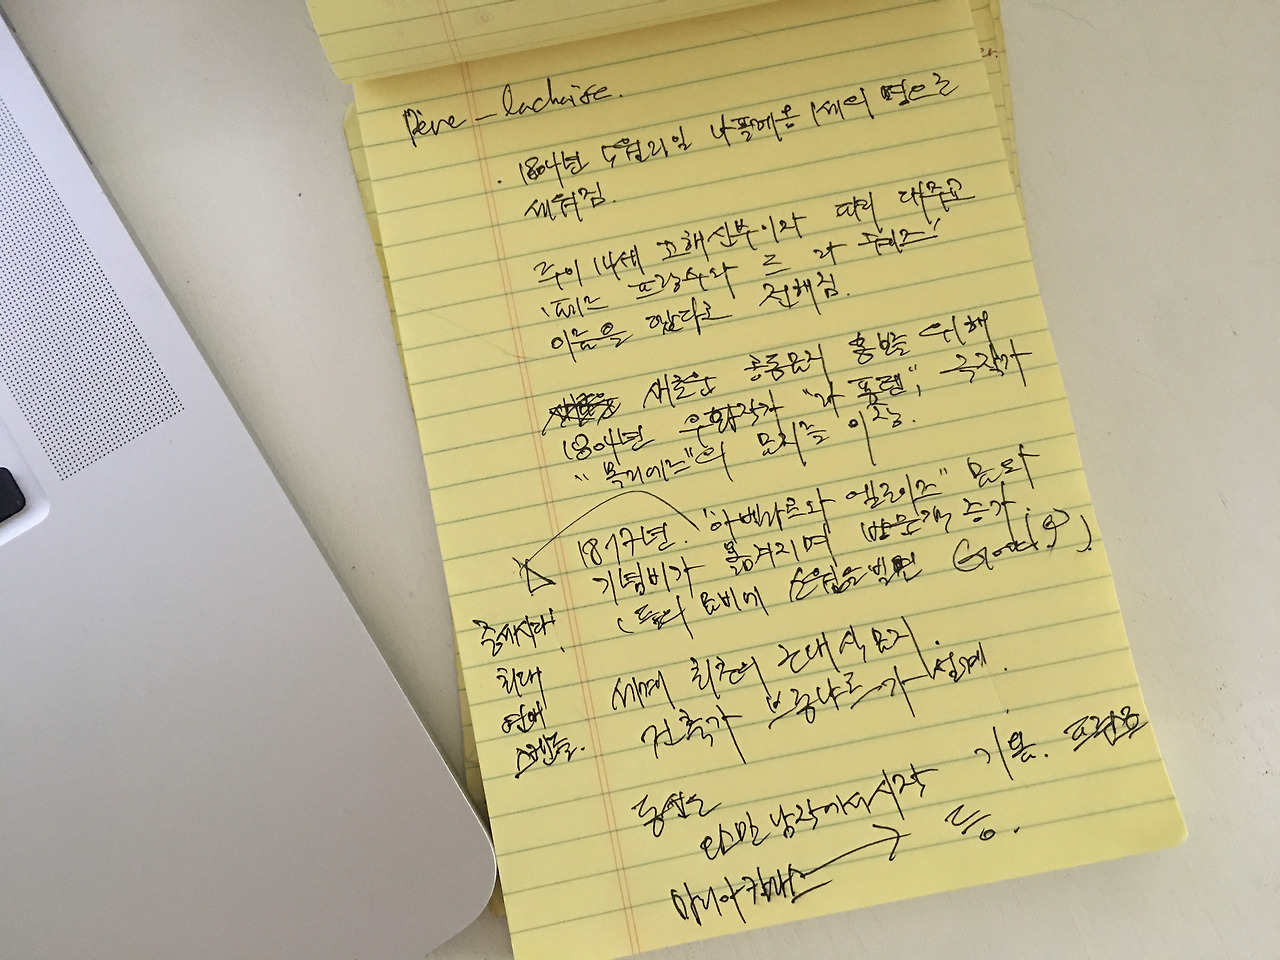 Père-lachaise.
· 1804년 5월21일 나폴레옹 1세의 명으로
세워짐.
루이 14세 고해신부이자 파리 대주교
프랑수아 드 라 쉐이즈"
이름을 땄다고 전해짐.
서울 공동묘지 홍보를 위해
1804년 우화작가 "라 퐁텐", 극작가
"몰리에르"의 묘지를 이장.
1817년. "아베라르와 엘로이즈" 묘와
기념비가 옮겨지며 방문객 증가
(둘의 묘비에 손점을 빌면 Good!?).
중세시대!
최대
연애
스캔들.
세계 최초의 근대식 묘지.
건축가 브롱냐르가 설계.
동선은
오스만 남작에서 시작
마리아칼라스 → 등.